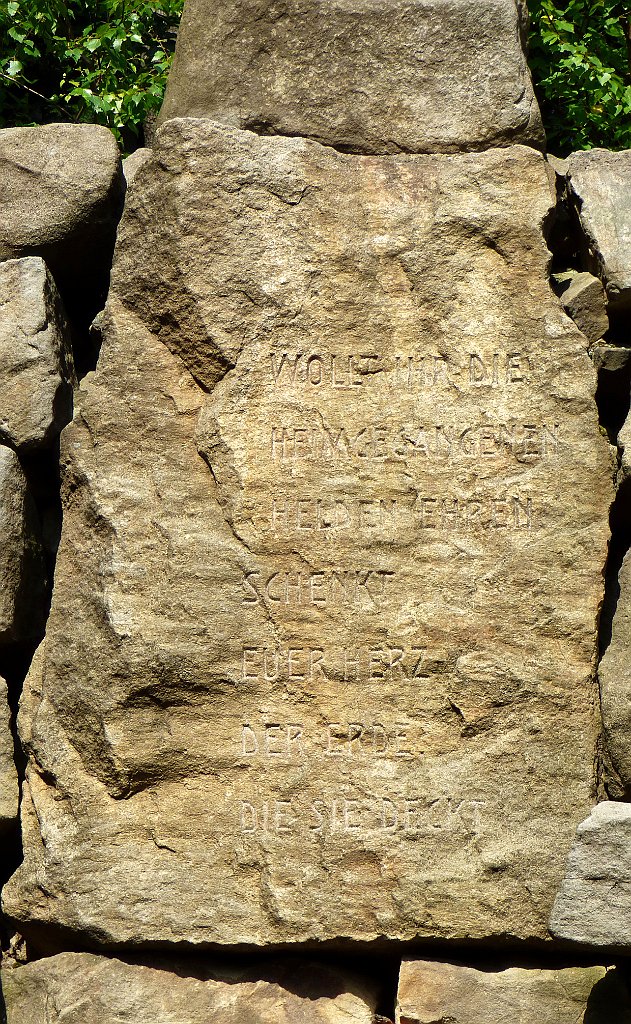 WOLLT IHR DIE
HEIMGESANGENEN
HELDEN EHREN
SCHENKT
EUER HERZ
DER ERDE
DIE SIE DECKT